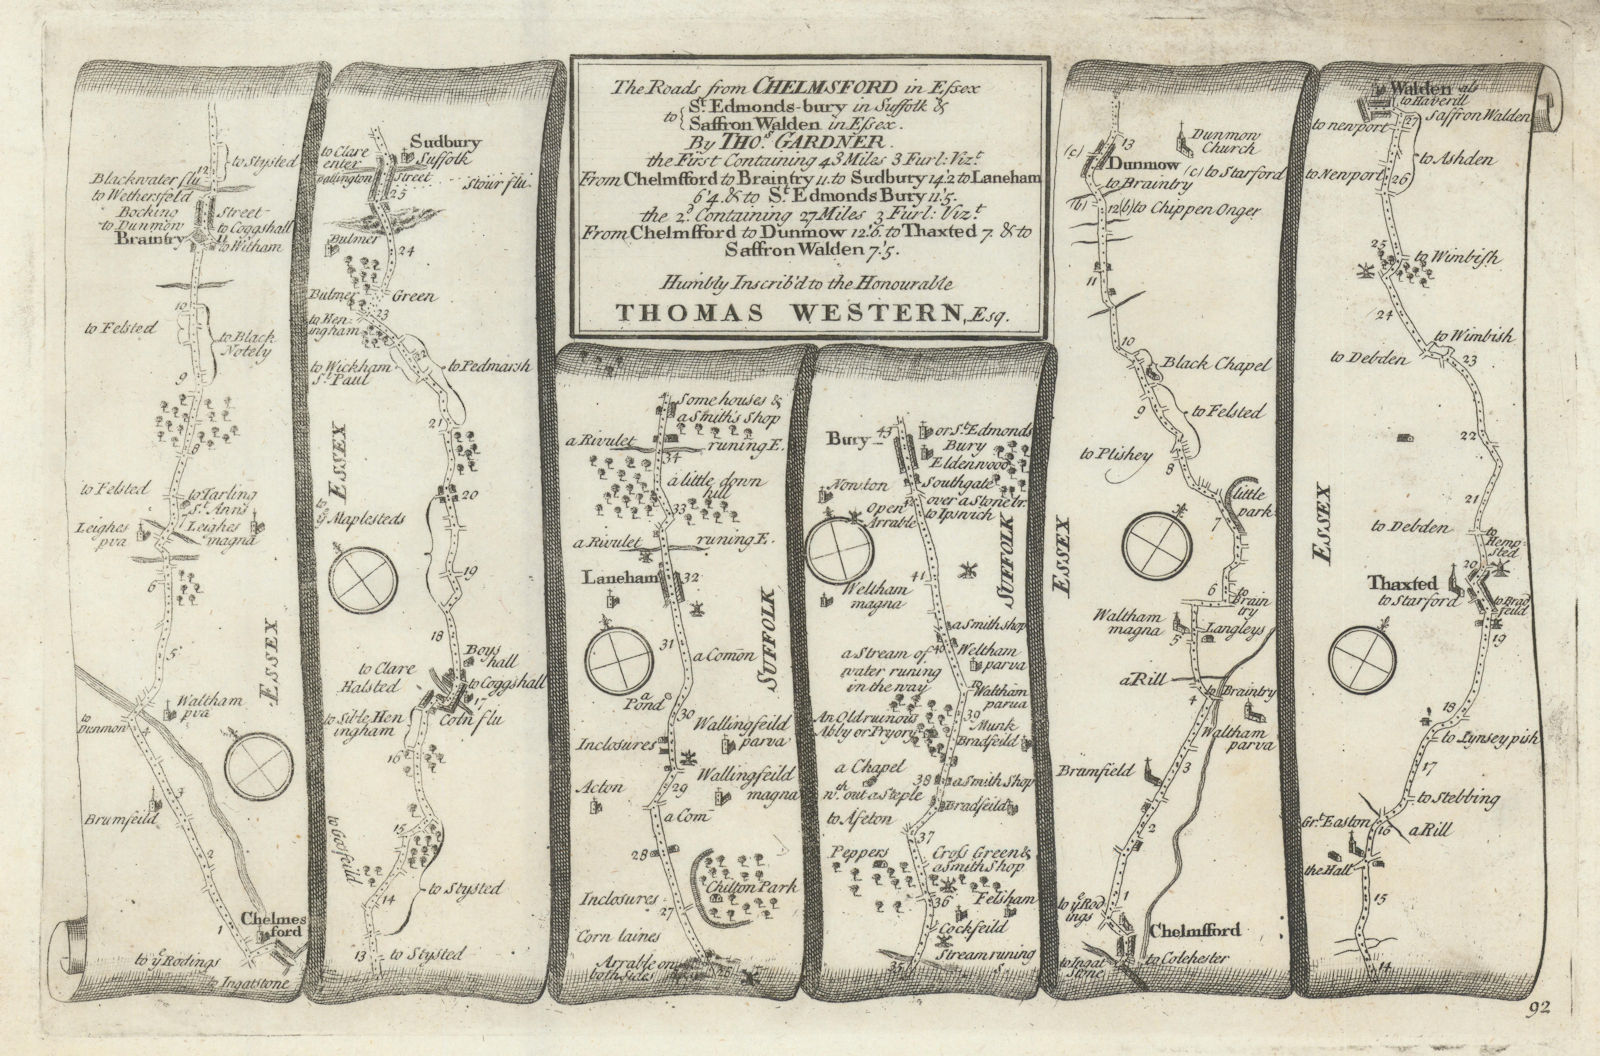 The Roads from CHELMSFORD in Essex
to { St. Edmonds-bury in Suffolk &
Saffron Walden in Essex.
By THOs. GARDNER.
the First Containing 43 Miles 3 Furl: Vizt.
From Chelmsford to Braintry 11. to Sudbury 14'2 to Laneham
6'4. & to St. Edmonds Bury 11'5.
the 2d. Containing 27 Miles 3 Furl: Vizt.
From Chelmsford to Dunmow 12'6. to Thaxted 7. & to
Saffron Walden 7'5.
Humbly Inscrib'd to the Honourable
THOMAS WESTERN, Esq.
to Stysted
12
Blackwater flu
to Wethersfeld
Bocking Street
to Dunmow to Coggshall
Braintry 11 to Witham
10
to Felsted
to Black
Notely
9
8
to Felsted
to Tarling
St. Anns
Leighes
pva
Leighes
magna
6
ESSEX
5
Waltham
pva
to
Dunmow
4
3
Brumfeild
2
Chelmes
ford
1
to ye Rodings
to Ingatstone
Sudbury
Suffolk
to Clare
enter
Ballington Street
Stour flu.
25
Bulmer
24
Bulmer Green
23
to Hen-
ingham
to Wickham
St. Paul
to Pedmarsh
21
ESSEX
20
to
ye Maplesteds
19
18
Boys
hall
to Clare
Halsted
to Coggshall
17
Coln flu
to Sible Hen
ingham
16
15
to Gosfeild
14
to Stysted
13
to Stysted
Some houses &
a Smith's Shop
a Rivulet runing E.
34
a little down
hill
33
a Rivulet runing E.
Laneham 32
SUFFOLK
31
a Comon
a
Pond
30
Wallingfeild
parva
Inclosures
Acton
29
Wallingfeild
magna
a Com
28
Chilton Park
Inclosures
27
Corn laines
Arrable on
both sides
26
Bury 43
or St. Edmonds
Bury
Eldenwood
Nowton
Southgate
over a Stone br.
to Ipswich
Open
Arrable
SUFFOLK
41
Weltham
magna
a Smith shop
40
Weltham
parva
a Stream of
water runing
in the way
Waltham
parva
39
An Old ruinous
Abby or Pryory
Munk
Bradfeild
a Chapel
nth. out a Steple
38
a Smith Shop
Bradfeild
to Aseton
37
Peppers
Cross Green &
a Smith Shop
36
Felsham
Cockfeild
Stream runing
35
S
13
Dunmow
Church
(c)
Dunmow
(c) to Starford
to Braintry
(b) 12 (b) to Chippen Onger
11
10
Black Chapel
9
to Felsted
to Plishey
8
little
park
7
ESSEX
6
to
Brain
try
Waltham
magna
5
Langleys
a Rill
to Braintry
4
Waltham
parva
Brumfield
3
2
to
ye Rod
ings
1
Chelmsford
to Ingat
Stone
to Colchester
Walden als
to Haverill Saffron Walden
to newport 27
to Ashden
to Newport 26
25
to Wimbish
24
to Wimbish
to Debden
23
22
21
ESSEX
to Debden
to
Hemp-
sted
20
Thaxted
to Starford
to Brad
feild
19
18
to Lynsey pish
17
to Stebbing
Grt. Easton
16
a Rill
the Hall
15
14
92